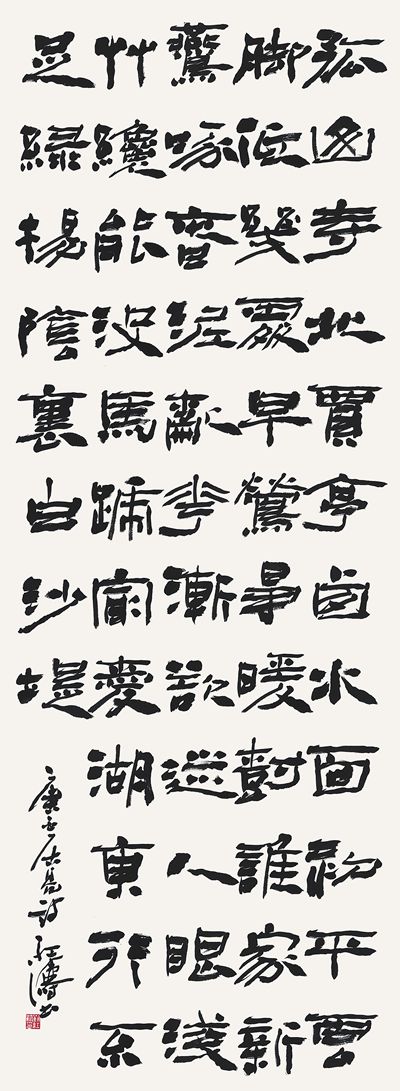 孤山寺北賈亭西水面初平雲
脚低幾處早鶯爭暖樹誰家新
鷰啄春泥亂花漸欲迷人眼淺
艸纔能没馬蹄最愛湖東行不
足綠楊陰裏白沙堤
唐白居易詩